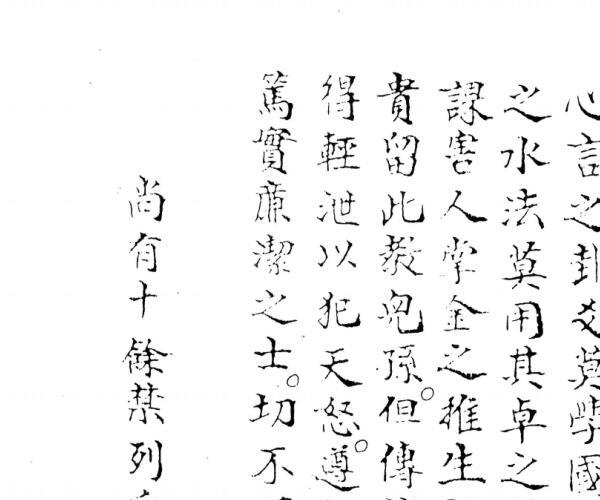 心言之卦爻莫學國
之水法莫用其卓之
課害人掌金之推生
貴留此教兒孫但傳
得輕泄以犯天怒遵
篤實廉潔之士切不
尚有十餘禁列